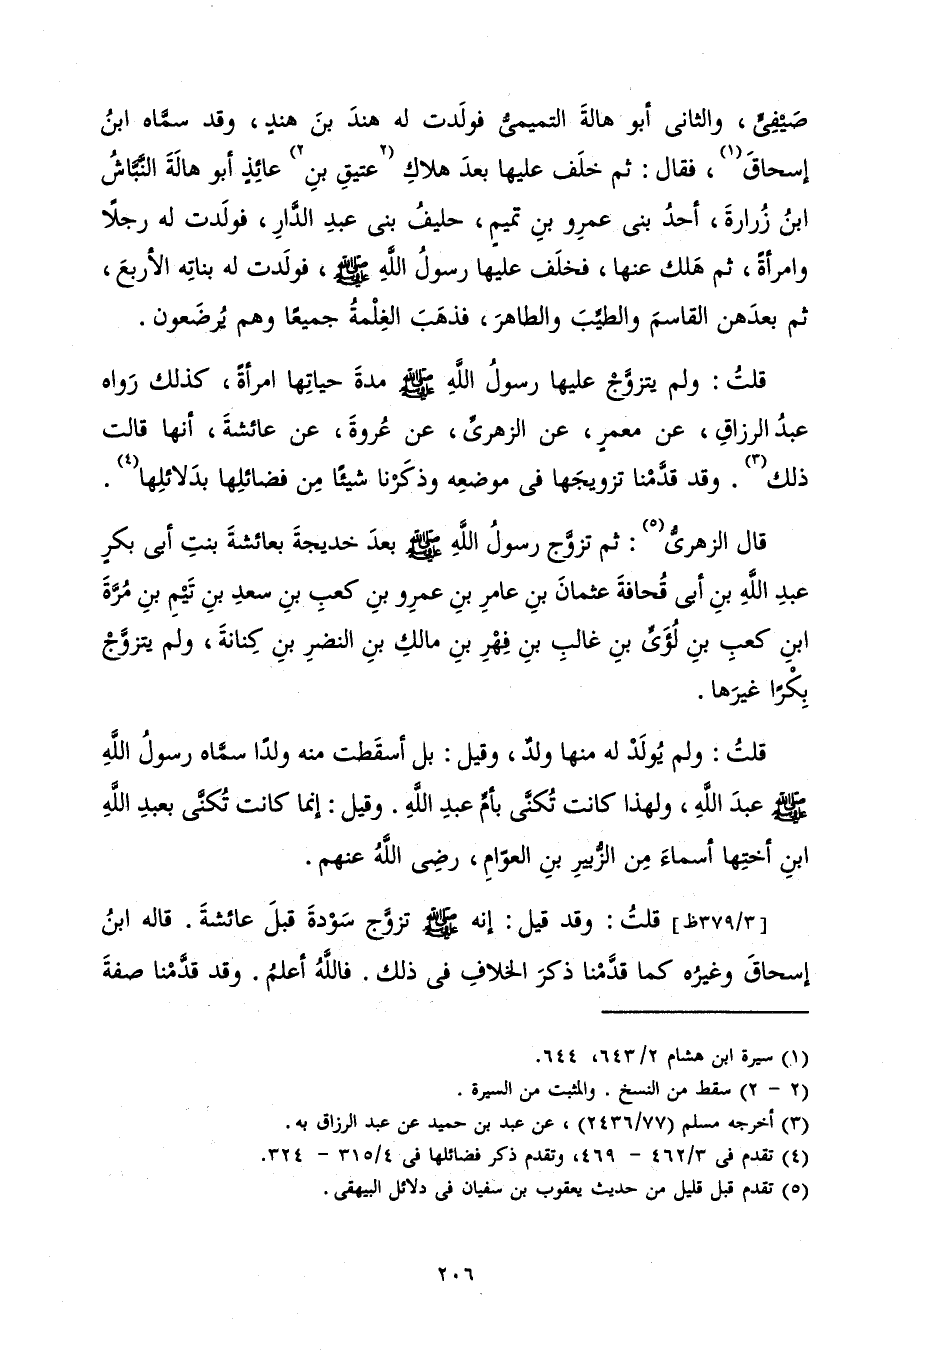 صَيْفِيٍّ ، والثانى أبو هالةَ التميمىُّ فولَدت له هندَ بنَ هندٍ ، وقد سمَّاه ابنُ
إسحاقَ(١) ، فقال : ثم خلَف عليها بعدَ هلاكِ (٢عتيقِ بنِ٢) عائِذٍ أبو هالَةَ النَّبَّاشُ
ابنُ زُرارةَ ، أحدُ بنى عمرِو بنِ تميمٍ ، حليفُ بنى عبدِ الدَّارِ ، فولَدت له رجلًا
وامرأةً ، ثم هَلك عنها ، فخلَف عليها رسولُ اللَّهِ ﷺ ، فولَدت له بناتِه الأربعَ ،
ثم بعدَهن القاسمَ والطيِّبَ والطاهرَ ، فذهَبَ الغِلْمةُ جميعًا وهم يُرضَعون .
قلتُ : ولم يتزوَّجْ عليها رسولُ اللَّهِ ﷺ مدةَ حياتِها امرأةً ، كذلك رَواه
عبدُ الرزاقِ ، عن معمرٍ ، عن الزهرىِّ ، عن عُروةَ ، عن عائشةَ ، أنها قالت
ذلك(٣) . وقد قدَّمْنا تزويجَها فى موضعِه وذكَرْنا شيئًا مِن فضائلِها بدَلائلِها(٤) .
قال الزهرىُّ(٥) : ثم تزوَّج رسولُ اللَّهِ ﷺ بعدَ خديجةَ بعائشةَ بنتِ أبى بكرٍ
عبدِ اللَّهِ بنِ أبى قُحافةَ عثمانَ بنِ عامرِ بنِ عمرِو بنِ كعبِ بنِ سعدِ بنِ تَيْمِ بنِ مُرَّةَ
ابنِ كعبِ بنِ لُؤَىِّ بنِ غالبِ بنِ فِهْرِ بنِ مالكِ بنِ النضرِ بنِ كِنانةَ ، ولم يتزوَّجْ
بِكْرًا غيرَها .
قلتُ : ولم يُولَدْ له منها ولدٌ ، وقيل : بل أسقَطت منه ولدًا سمَّاه رسولُ اللَّهِ
ﷺ عبدَ اللَّهِ ، ولهذا كانت تُكنَّى بأمِّ عبدِ اللَّهِ . وقيل : إنما كانت تُكنَّى بعبدِ اللَّهِ
ابنِ أختِها أسماءَ مِن الزُّبيرِ بنِ العوّامِ ، رضِى اللَّهُ عنهم .
[٣٧٩/٣ظ] قلتُ : وقد قيل : إنه ﷺ تزوَّج سَوْدةَ قبلَ عائشةَ . قاله ابنُ
إسحاقَ وغيرُه كما قدَّمْنا ذكرَ الخلافِ فى ذلك . فاللَّهُ أعلمُ . وقد قدَّمْنا صفةَ
(١) سيرة ابن هشام ٦٤٣/٢، ٦٤٤.
(٢ - ٢) سقط من النسخ . والمثبت من السيرة .
(٣) أخرجه مسلم (٢٤٣٦/٧٧) ، عن عبد بن حميد عن عبد الرزاق به .
(٤) تقدم فى ٤٦٢/٣ - ٤٦٩، وتقدم ذكر فضائلها فى ٣١٥/٤ - ٣٢٤.
(٥) تقدم قبل قليل من حديث يعقوب بن سفيان فى دلائل البيهقى .
٢٠٦